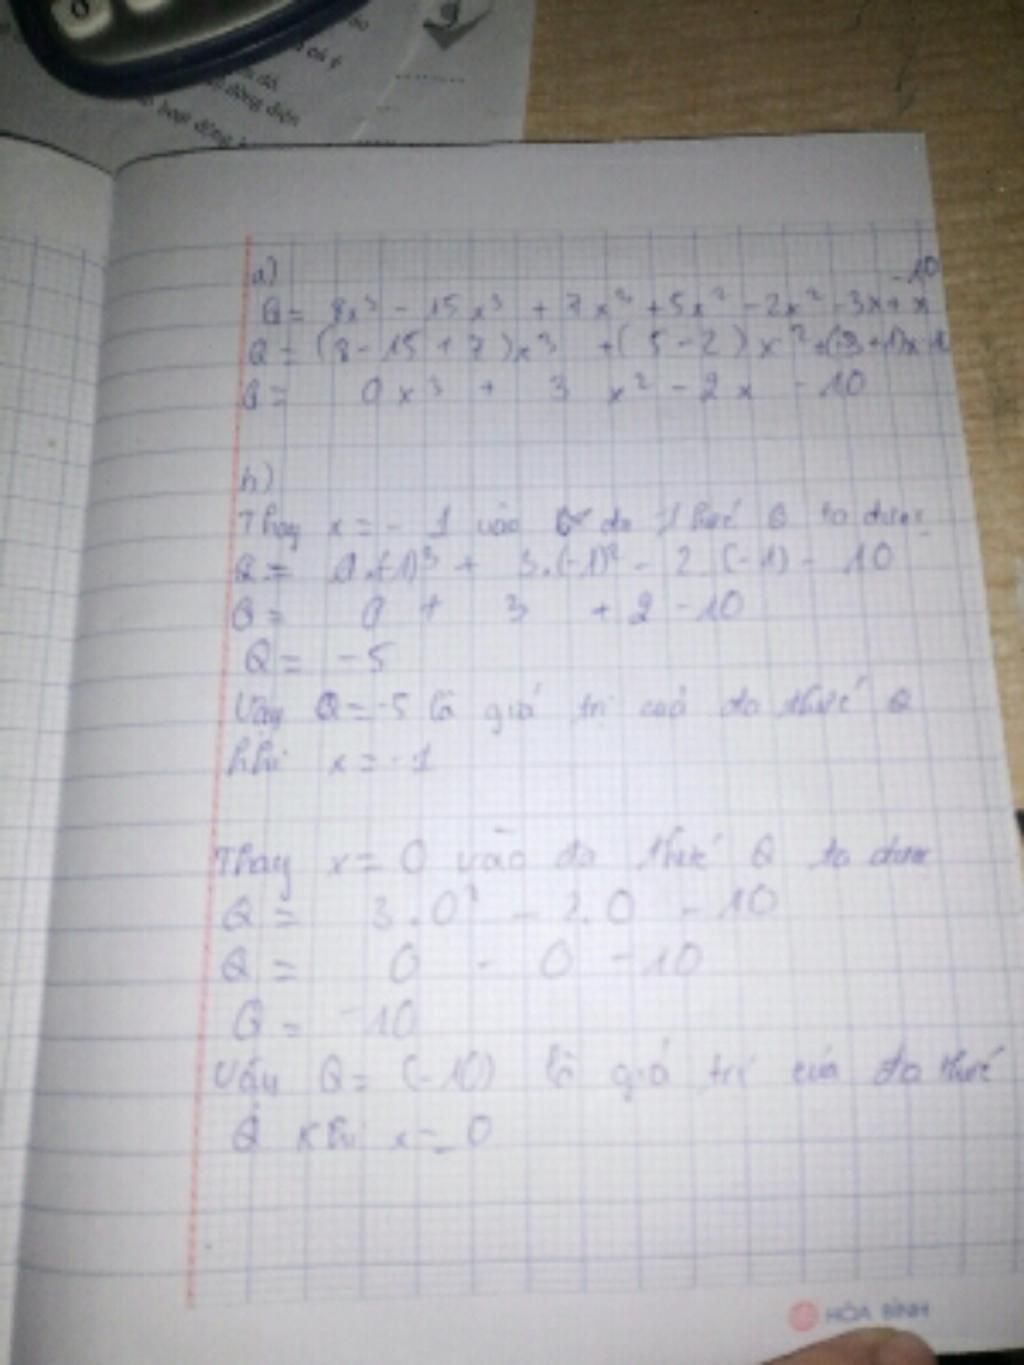 9
có ý
dòng điện
hoạt động
a)
-10
Q = 8x³ - 15x³ + 7x³ + 5x² - 2x² - 3x + x
Q = (8 - 15 + 7)x³ + (5 - 2)x² + (-3 + 1)x - 1
Q = 0x³ + 3x² - 2x - 10
b)
Thay x = -1 vào đa thức Q ta được
Q = 0.(-1)³ + 3.(-1)² - 2.(-1) - 10
Q = 0 + 3 + 2 - 10
Q = -5
Vậy Q = -5 là giá trị của đa thức Q
khi x = -1
Thay x = 0 vào đa thức Q ta được
Q = 3.0² - 2.0 - 10
Q = 0 - 0 - 10
Q = -10
Vậy Q = (-10) là giá trị của đa thức
Q khi x = 0
HÒA BÌNH